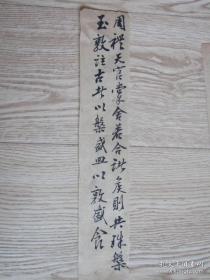 周禮天官若合諸侯則共珠槃
玉敦注古者以槃盛血以敦盛食